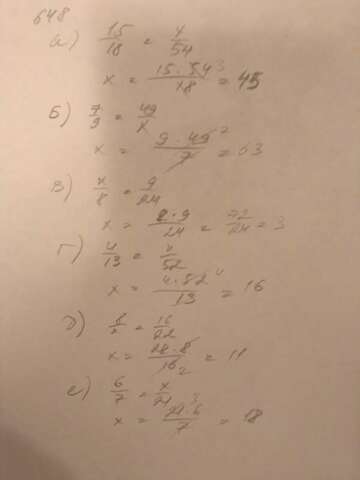 648
а) 15/18 = x/54
x = 15·54³/18 = 45
Б) 7/9 = 49/x
x = 9·49/7 = 63
В) x/8 = 9/24
x = 8·9/24 = 72/24 = 3
Г) 4/13 = x/52
x = 4·52⁴/13 = 16
д) 8/x = 16/22
x = 22·8/16₂ = 11
е) 6/7 = x/21
x = 21³·6/7 = 18